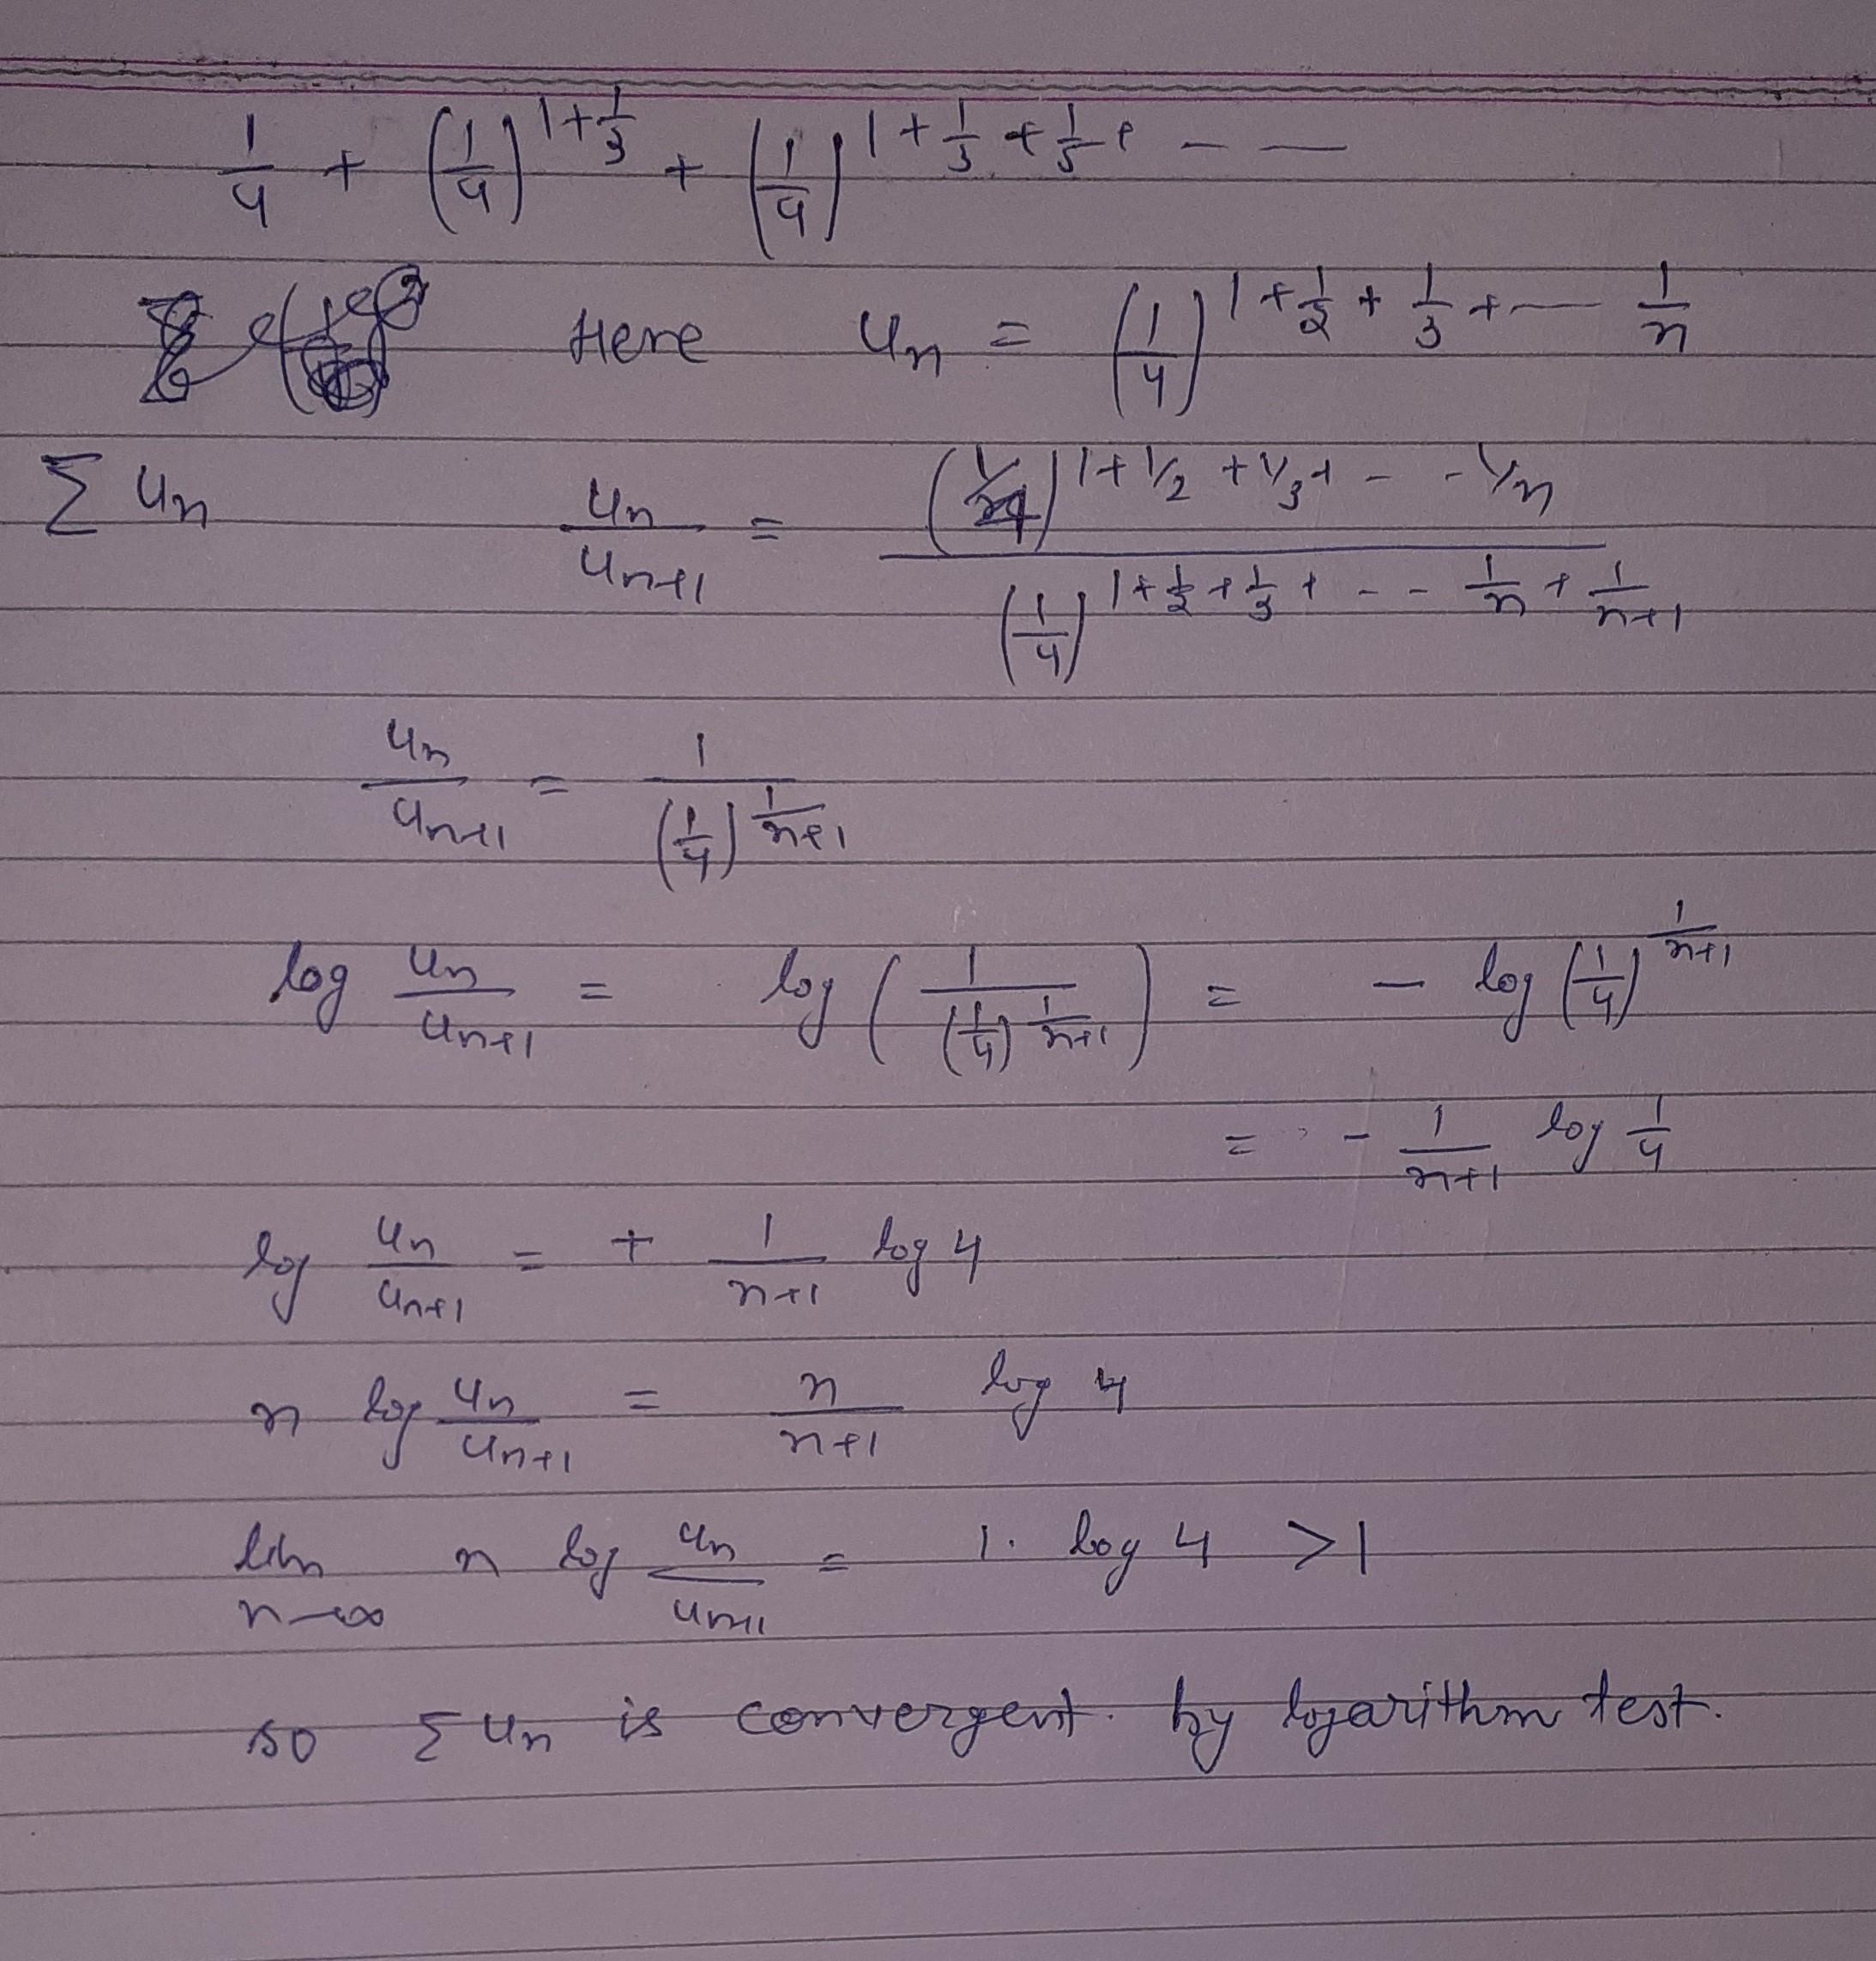 1/4 + (1/4)^(1+1/3) + (1/4)^(1+1/3+1/5+ - -
Here u_n = (1/4)^(1+1/2+1/3+ - 1/n)
Σ u_n u_n/u_n+1 = (1/4)^(1+1/2+1/3+ - - 1/n) / (1/4)^(1+1/2+1/3+ - - 1/n+1/(n+1))
u_n/u_n+1 = 1/(1/4)^(1/(n+1))
log u_n/u_n+1 = log (1/(1/4)^(1/(n+1))) = - log (1/4)^(1/(n+1))
= - 1/(n+1) log 1/4
log u_n/u_n+1 = + 1/(n+1) log 4
n log u_n/u_n+1 = n/(n+1) log 4
lim n→∞ n log u_n/u_n+1 = 1. log 4 >1
so Σ u_n is convergent. by logarithm test.